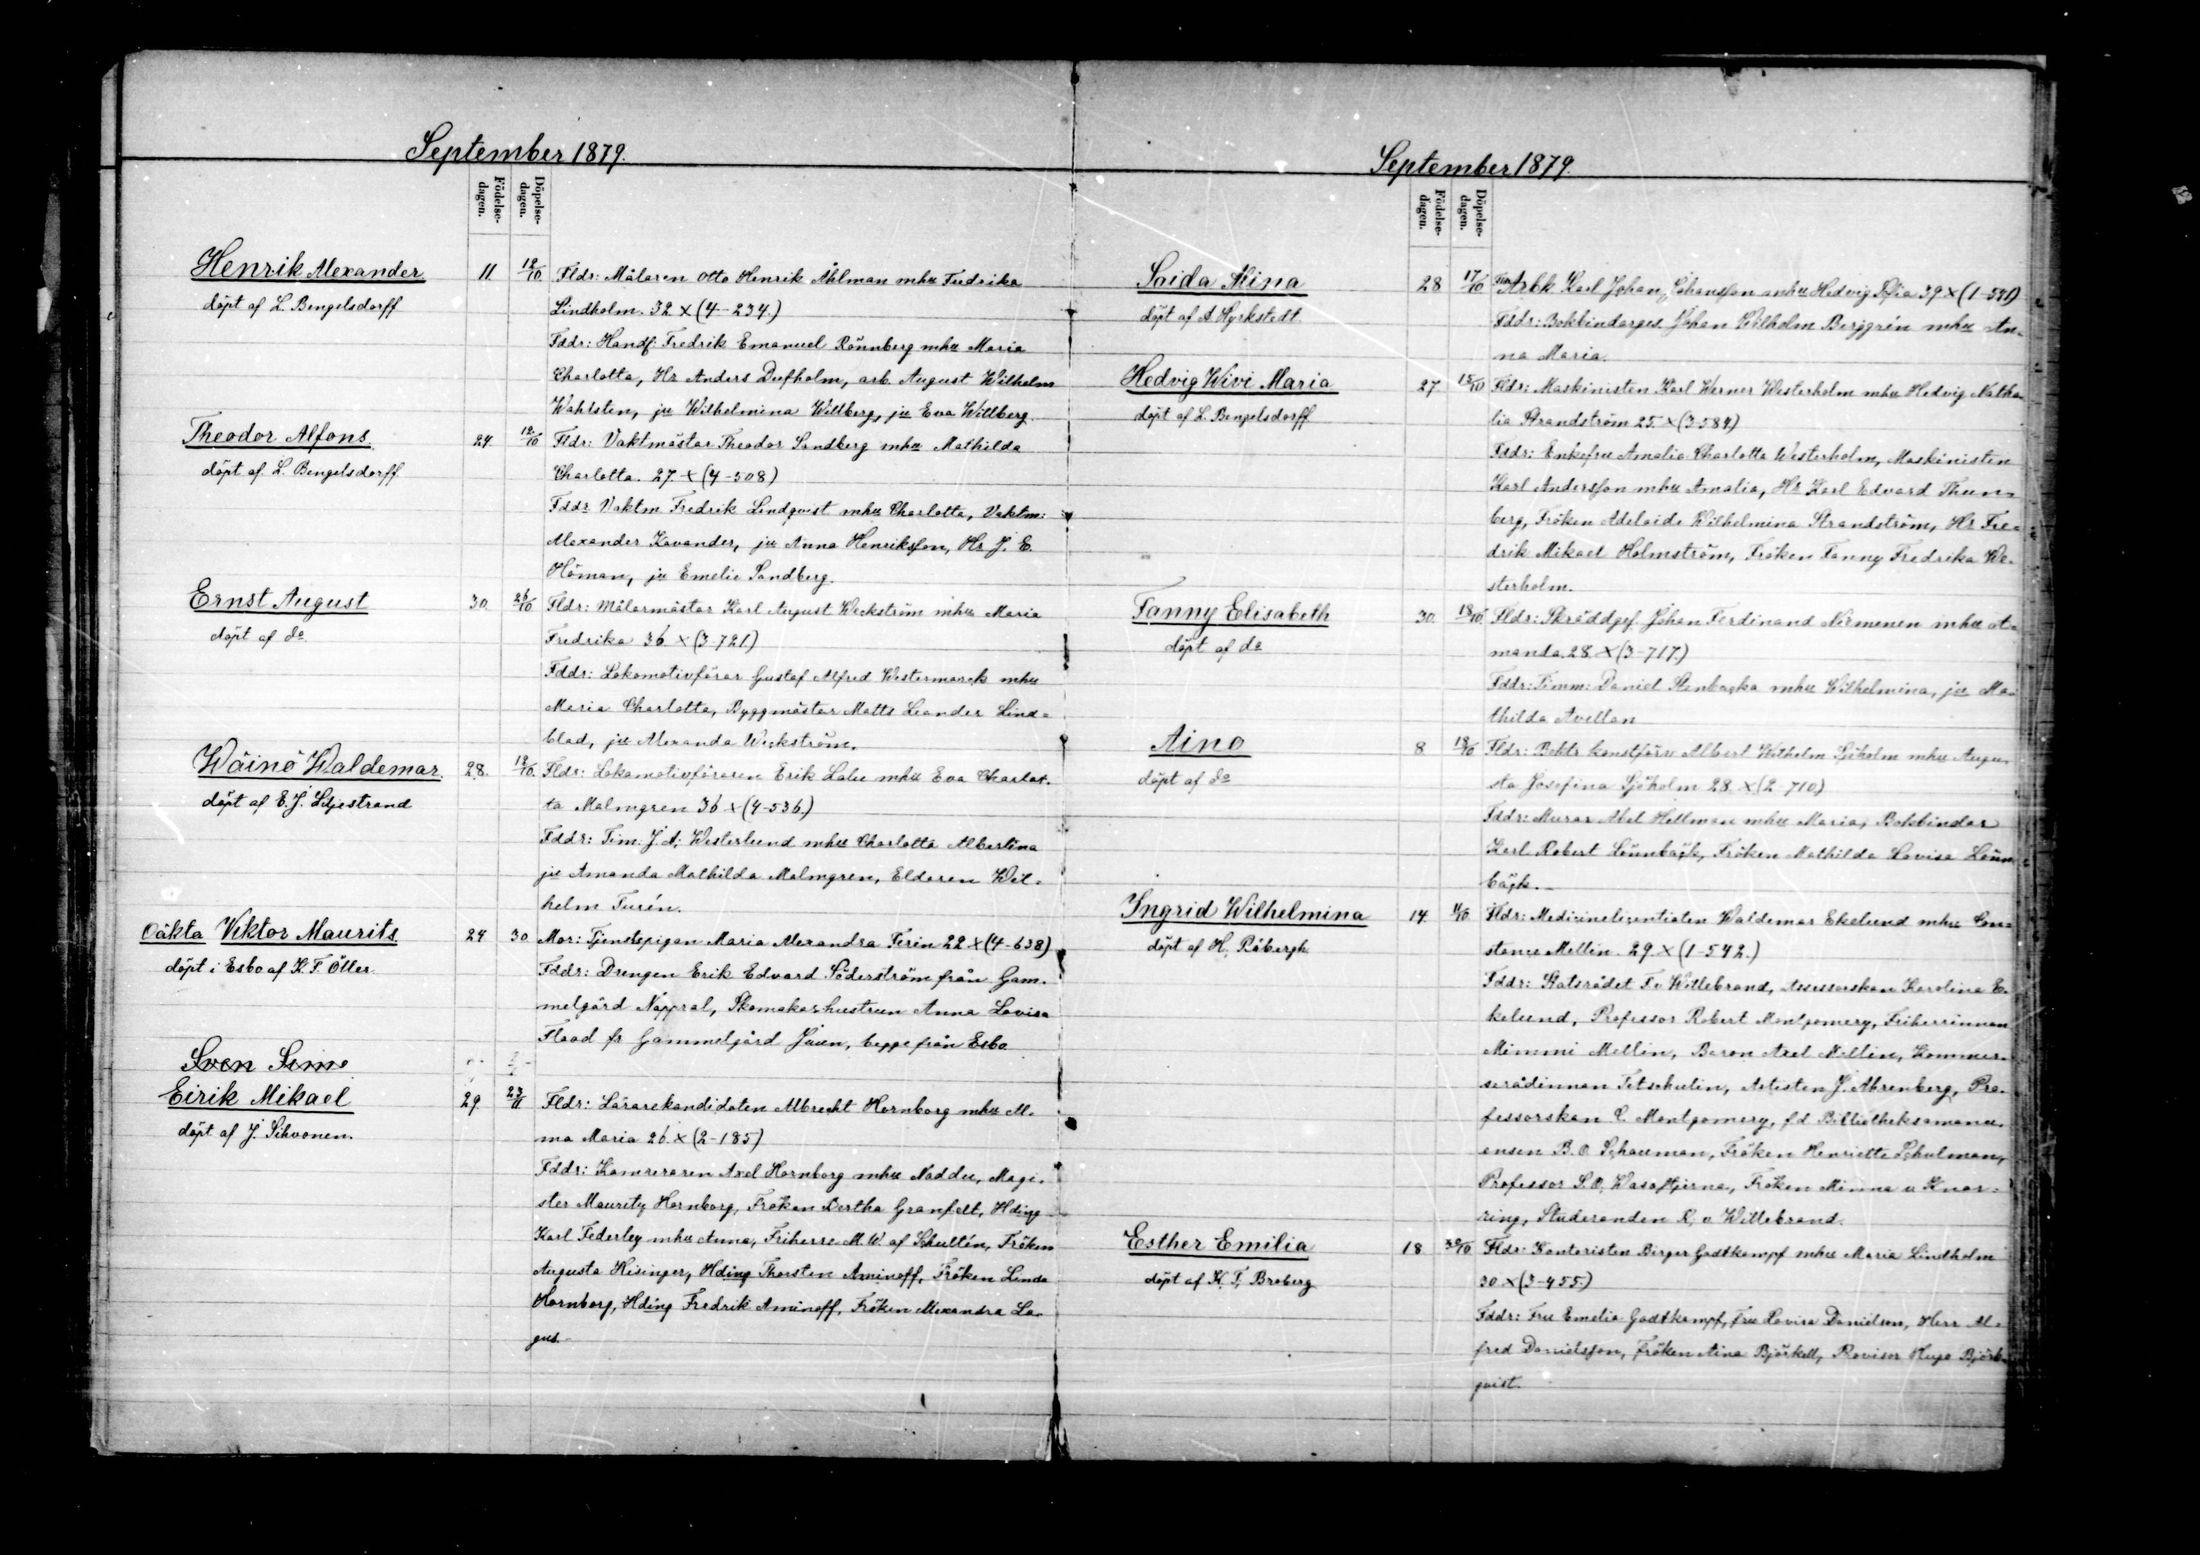 September 1879.
Födelse-
dagen.
Döpelse-
dagen.
Henrik Alexander
döpt af L. Bengelsdorff
11
12/10
Fldr: Målaren Otto Henrik Åhlman mhu Fredrika
Lindholm. 32 x (4-234.)
Fddr: Handf: Fredrik Emanuel Rönnberg mhu Maria
Charlotta, Hr Anders Dufholm, arb. August Wilhelm
Wahlsten, ju Wilhelmina Willberg, ju Eva Willberg.
Theodor Alfons
döpt af L. Bengelsdorff
24
12/10
Fldr: Vaktmästar Theodor Sandberg mhu Mathilda
Charlotta. 27. x (4-508)
Fddr Vaktm Fredrik Lindqvist mhu Charlotta, Vaktm:
Alexander Kavander, ju Anna Henriksson, Hr J. E.
Höman, ju Emelie Sandberg.
Ernst August
döpt af do
30.
26/10
Fldr: Målarmästar Karl August Weckström mhu Maria
Fredrika 36 x (3-721.)
Fddr: Lokomotivförar Gustaf Alfred Westermarck mhu
Maria Charlotta, Byggmästar Matts Leander Lind=
blad, ju Alexanda Weckström.
Wäinö Waldemar.
döpt af E. J. Liljestrand
28.
12/10.
Fldr: Lokamotivföraren Erik Lalu mhu Eva Charlot.
ta Malmgren 36 x (4-536.)
Fddr: Tim. J. A. Westerlund mhu Charlotta Albertina
ju Amanda Mathilda Malmgren, Elderen Wil.
helm Turén.
Oäkta Viktor Maurits
döpt i Esbo af K. F. Öller
24
30
Mor: Tjenstepigan Maria Alexandra Ferin 22 x (4-638)
Fddr: Drengen Erik Edvard Söderström från Gam.
melgård Nappral, Skomakarhustrun Anna Lovisa
Flood fr Gammelgård, begge från Esbo
Sven
Eirik Mikael
döpt af J. Sihvonen.
29.
23/11
Fldr: Lärarekandidaten Albrecht Hornborg mhu Al.
ma Maria 26 x (2-185)
Fddr: Kamreraren Axel Hornborg mhu Naddu, Magi.
ster Mauritz Hornborg, Fröken Bertha Granfelt, Hding
Karl Federley mhu Anna, Friherre M. W. af Schultén, Fröken
Augusta Hisinger, Hding Thorsten Aminoff, Fröken Linda
Hornborg, Hding Fredrik Aminoff, Fröken Alexandra La.
gus.
September 1879.
Födelse-
dagen.
Döpelse-
dagen.
Saida Mina
döpt af A Hyrkstedt
28
17/10
Arbk Karl Johan Johansson mhu Hedvig Sofia 39 x
Fddr: Bokbindarges. Johan Wilhelm Berggrén mhu An-
na Maria.
Hedvig Wivi Maria
döpt af L. Bengelsdorff
27.
15/10
Fldr: Maskinisten Karl Werner Westerholm mhu Hedvig Natha
lia Strandström 25. x (3-584)
Fddr: Enkefru Amalia Charlotta Westerholm, Maskinisten
Karl Andersson mhu Amalia, Hr Karl Edvard Thun=
berg, Fröken Adelaide Wilhelmina Strandström, Hr Fre=
drik Mikael Holmström, Fröken Fanny Fredrika We.
sterholm.
Fanny Elisabeth
döpt af do
30.
18/10
Fldr: Skräddgef Johan Ferdinand Nirmenen mhu A=
manda. 28. x (3-717.)
Fddr: Timm: Daniel Stenbacka mhu Wilhelmina, ju Ma=
thilda Avellan
Aino
döpt af do
8.
18/10
Fldr: Bokts konstförv Albert Wilhelm Sjöholm mhu Augu.
sta Josefina Sjöholm 28. x (2-710)
Fddr: Murar Abel Hellman mhu Maria, Bokbindar
Karl Robert Lönnbäck, Fröken Mathilda Lovisa Lönn
bäck.
Ingrid Wilhelmina
döpt af H. Råbergh
14.
11/10
Fldr: Medicinelicentiaten Waldemar Ekelund mhu Con=
stance Mellin. 29. x (1-542.)
Fddr: Statsrådet F. v Willebrand, Assessorskan Karolina E.
kelund, Professor Robert Montgomery, Friherrinnan
Mimmi Mellin, Baron Axel Mellin, Kommer=
serådinnan Tetschulin, Artisten J. Ahrenberg, Pro.
fessorskan C Montgomery, fd Bibliotheksamanu.
ensen B. O. Schauman, Fröken Henriette Schulman,
Professor S. O. Wasastjerna, Fröken Minna v Knor=
ring, Studeranden R. v Willebrand.
Esther Emilia
döpt af K. T. Broberg
18.
30/10
Fldr: Kontoristen Birger Gadtkampf mhu Maria Lindholm
30. x (3-455.)
Fddr: Fru Emelie Gadtkampf, Fru Lovisa Danielson, Herr Al=
fred Danielsson, Fröken Aina Björkell, Provisor Hugo Björk=
qvist.